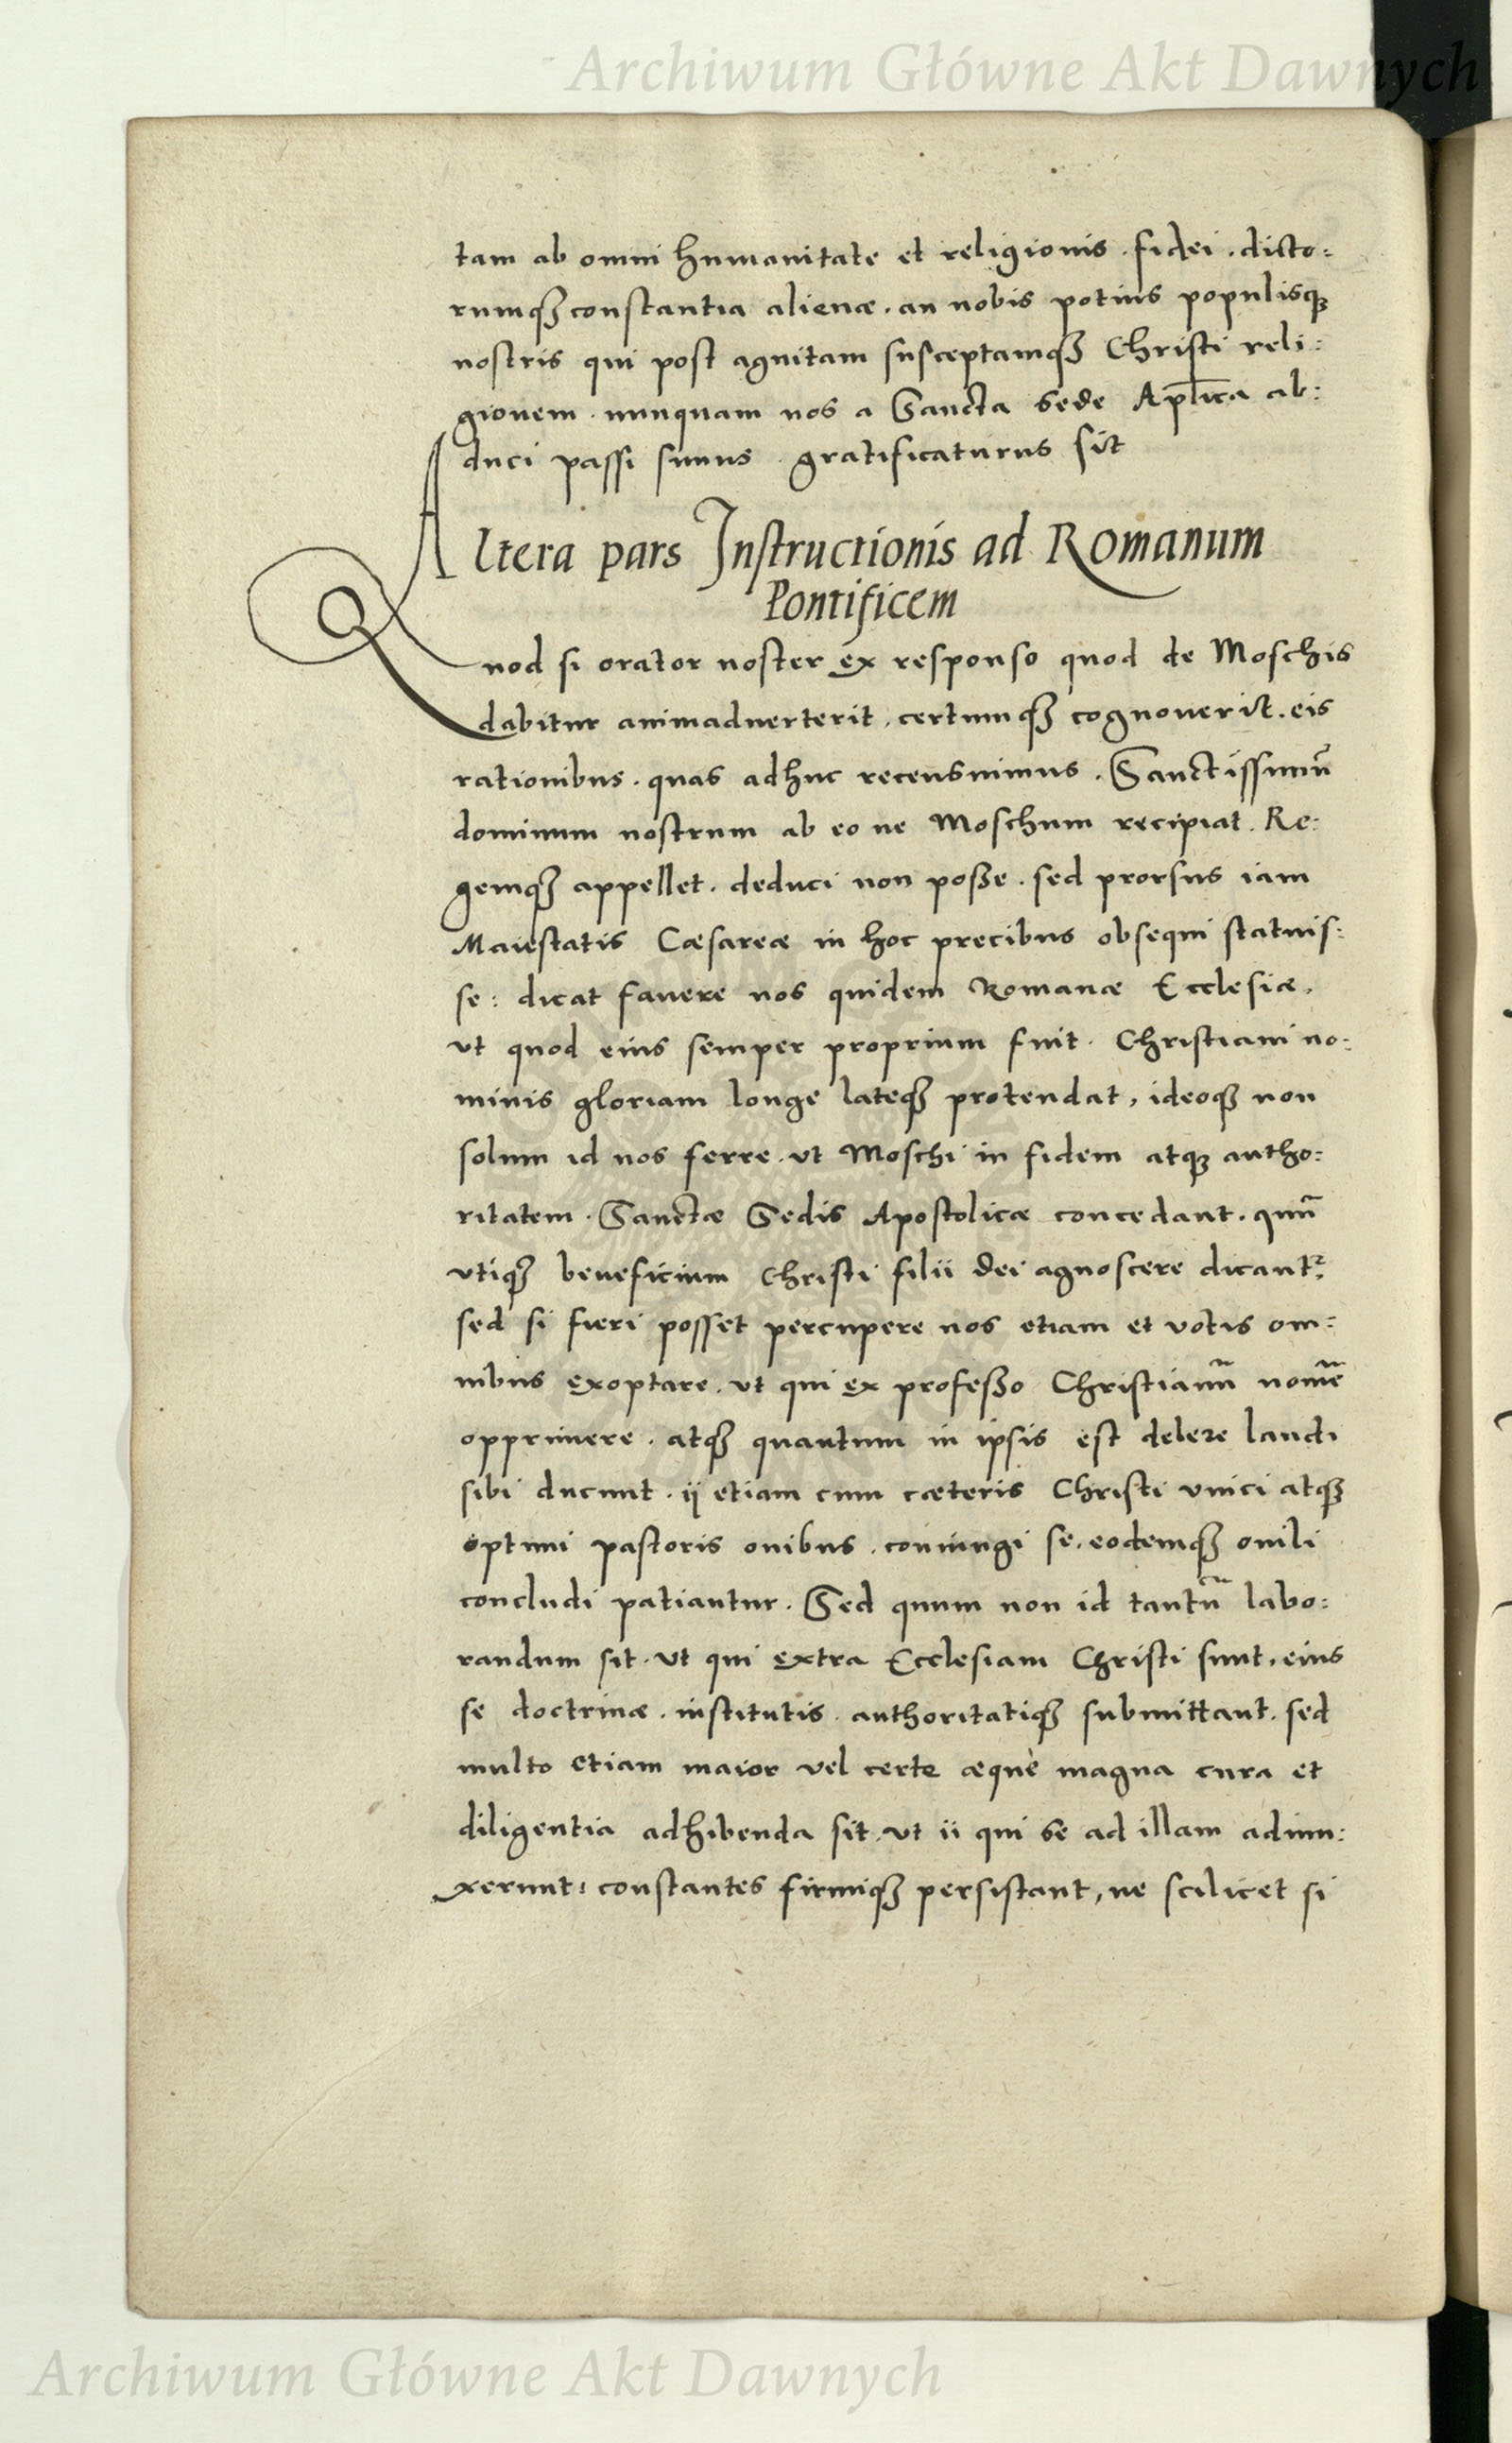 Archiwum Główne Akt Dawnych
tam ab omni humanitate et religionis . fidei . dicto:
rumqꝫ constantia alienæ . an nobis potius populisqꝫ
nostris qui post agnitam susceptamqꝫ Christi reli:
gionem . nunquam nos a Sancta Sede Ap̅lica ab:
duci passi sumus . gratificaturus sit
Altera pars Instructionis ad Romanum
Pontificem
Quod si orator noster ex responso quod de Moschis
dabitur animaduerterit . certumqꝫ cognouerit . eis
rationibus . quas adhuc recensuimus . Sanctissimu̅
dominum nostrum ab eo ne Moschum recipiat . Re:
gemqꝫ appellet . deduci non posse . sed prorsus iam
Maiestatis Cæsareæ in hoc precibus obsequi statuis:
se: dicat fauere nos quidem Romanæ Ecclesiæ,
ut quod eius semper proprium fuit . Christiani no:
minis gloriam longe lateqꝫ protendat, ideoqꝫ non
solum id nos ferre . ut Moschi in fidem atqꝫ autho:
ritatem . Sanctæ Sedis Apostolicæ concedant . quu̅
utiqꝫ beneficium Christi filii dei agnoscere dicantʳ.
sed si fieri posset percupere nos etiam et votis om:
nibus exoptare . ut qui ex professo Christianu̅ nome̅
opprimere . atqꝫ quantum in ipsis est delere laudi
sibi ducunt . ij etiam cum cæteris Christi unici atqꝫ
optimi pastoris ouibus . coniungi se . eodemqꝫ ouili
concludi patiantur . Sed quum non id tantu̅ labo:
randum sit . ut qui extra Ecclesiam Christi sunt, eius
se doctrinæ . institutis . authoritatiqꝫ submittant . sed
multo etiam maior vel certe æque magna cura et
diligentia adhibenda sit . ut ii qui se ad illam adiun:
xerunt: constantes firmiqꝫ persistant, ne scilicet si
Archiwum Główne Akt Dawnych